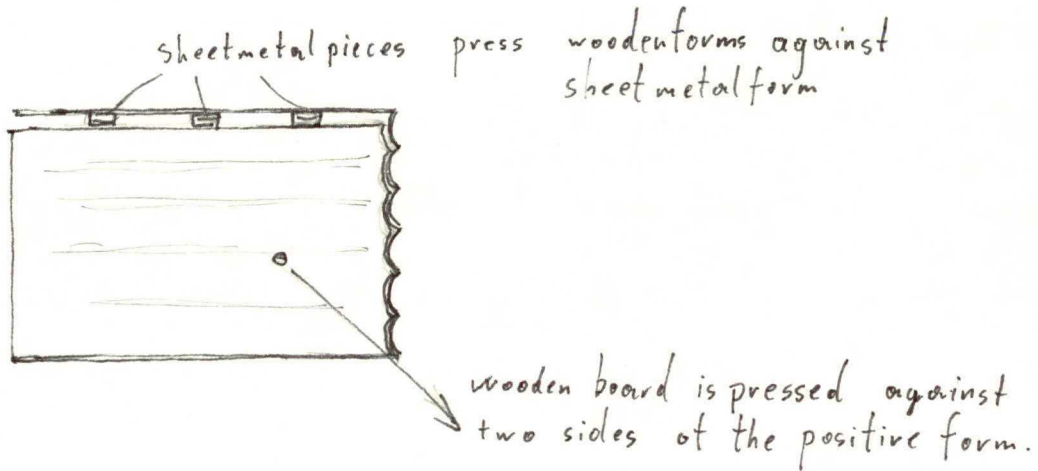 sheetmetal pieces press woodenforms against
sheet metal form
wooden board is pressed against
two sides of the positive form.